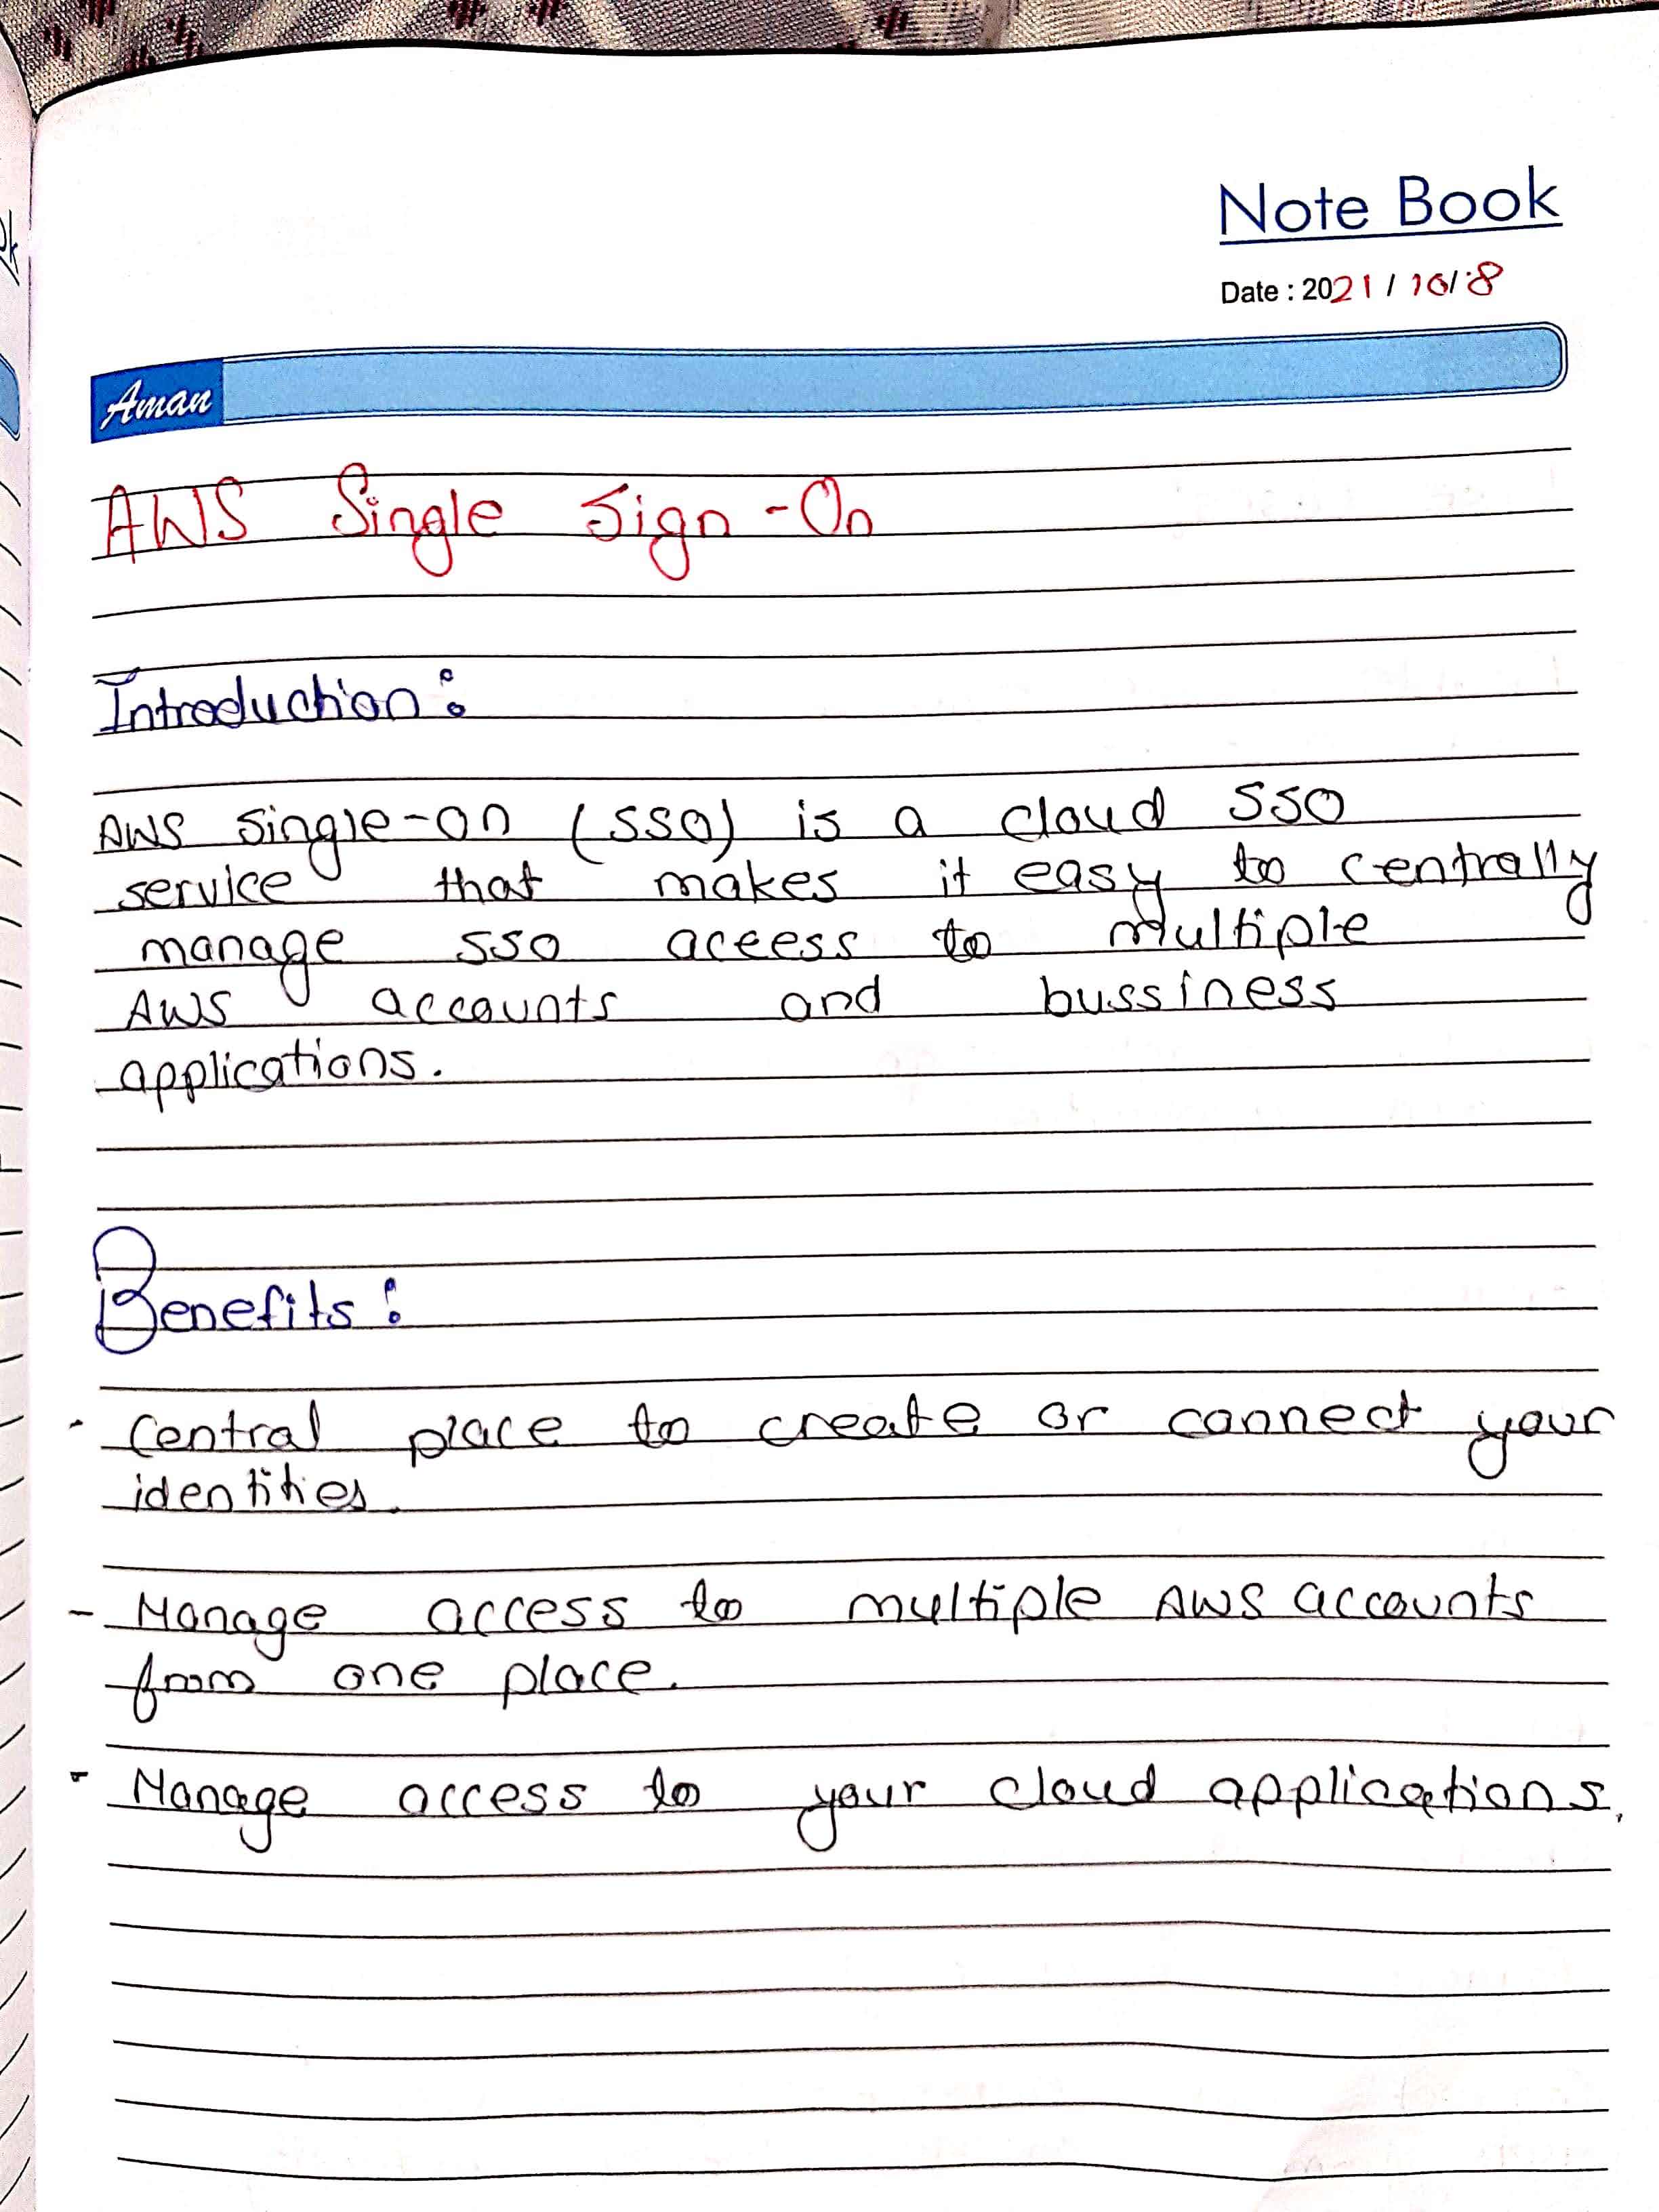 Note Book
Date : 2021 / 10/ 8
Aman
AWS Single Sign-On
Introduction :
AWS single-on (SSO) is a cloud SSO
service that makes it easy to centrally
manage SSO aceess to multiple
AWS accounts and bussiness
applications.
Benefits :
- Central place to create or connect your
identities.
- Manage access to multiple AWS accounts
from one place.
- Manage access to your cloud applications.